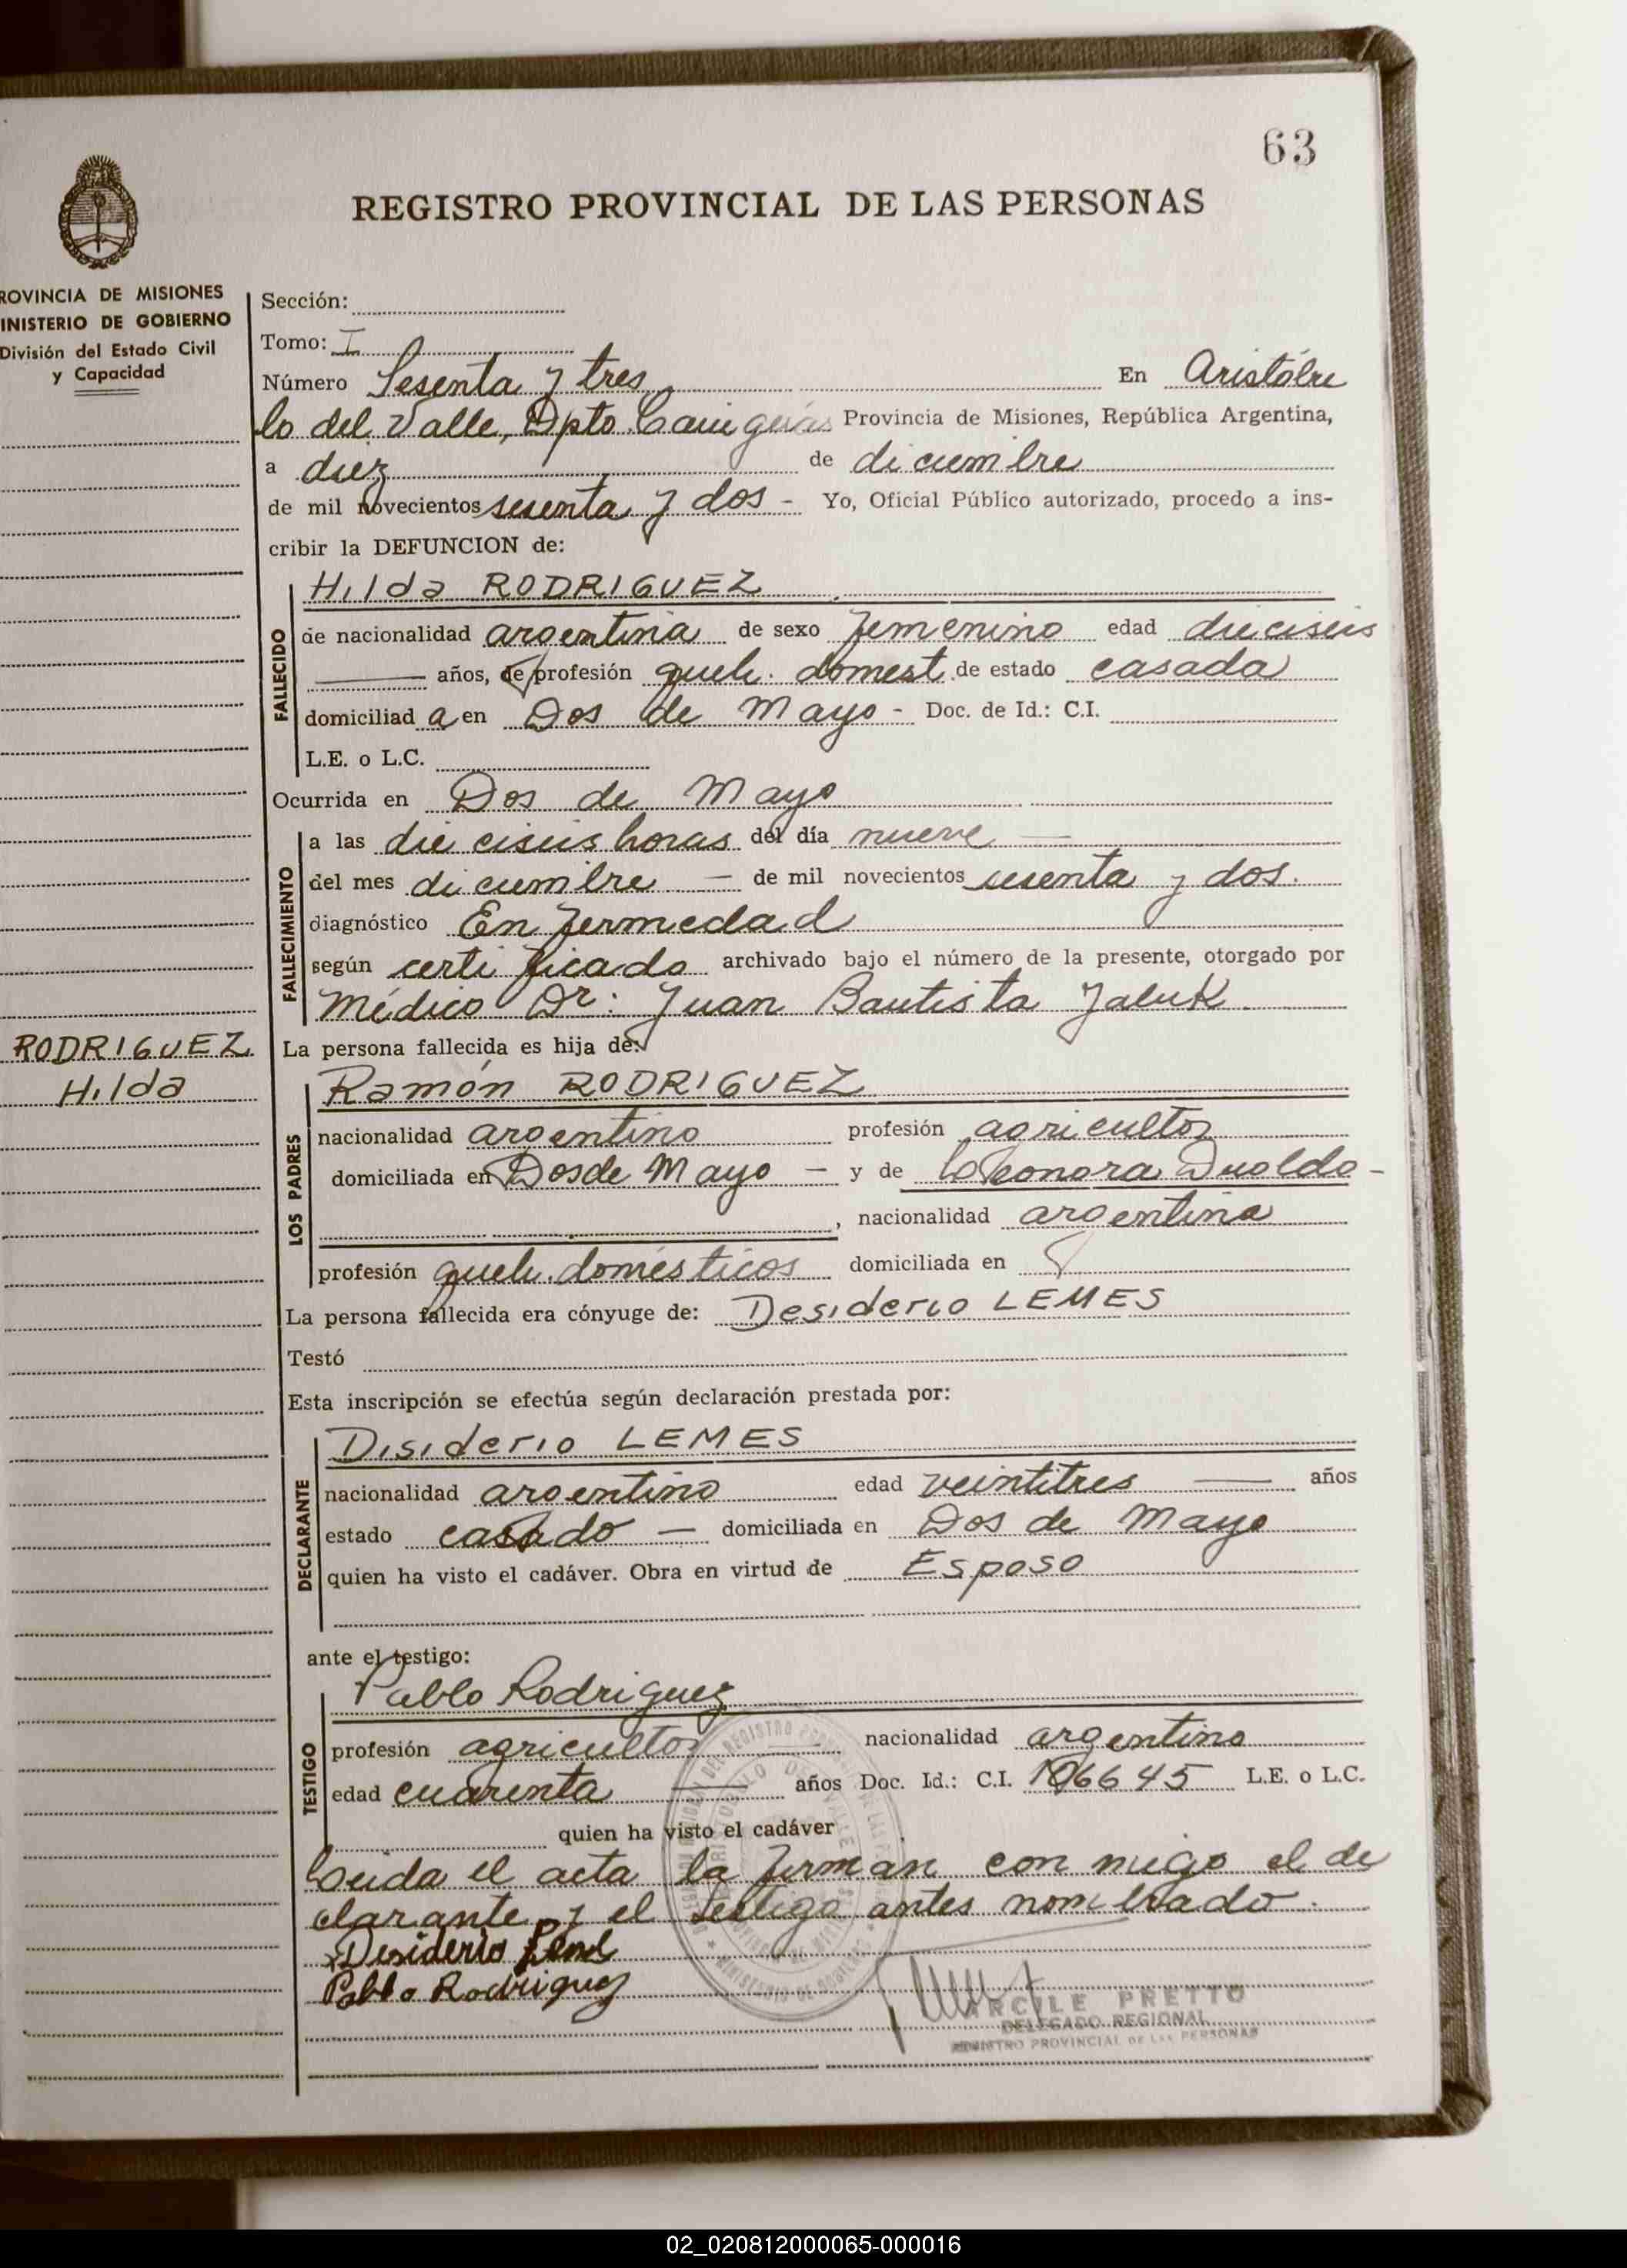 63
REGISTRO PROVINCIAL DE LAS PERSONAS
ROVINCIA DE MISIONES
INISTERIO DE GOBIERNO
División del Estado Civil
y Capacidad
Sección:
Tomo: I
Número Sesenta y tres En Aristóbu
lo del Valle, Dpto. Cainguás Provincia de Misiones, República Argentina,
a diez de diciembre
de mil novecientos sesenta y dos - Yo, Oficial Público autorizado, procedo a ins-
cribir la DEFUNCION de:
FALLECIDO
Hilda RODRIGUEZ
de nacionalidad argentina de sexo femenino edad dieciseis
años, de profesión queh. domest. de estado casada
domiciliad a en Dos de Mayo - Doc. de Id.: C.I.
L.E. o L.C.
Ocurrida en Dos de Mayo
FALLECIMIENTO
a las dieciseis horas del día nueve —
del mes diciembre — de mil novecientos sesenta y dos.
diagnóstico Enfermedad
según certificado archivado bajo el número de la presente, otorgado por
Médico Dr: Juan Bautista Jaluk.
RODRIGUEZ
Hilda
La persona fallecida es hija de:
LOS PADRES
Ramón RODRIGUEZ
nacionalidad argentino profesión agricultor
domiciliada en Dos de Mayo — y de Leonora Dualdo -
, nacionalidad argentina
profesión queh. domésticos domiciliada en
La persona fallecida era cónyuge de: Desiderio LEMES
Testó
Esta inscripción se efectúa según declaración prestada por:
DECLARANTE
Disiderio LEMES
nacionalidad argentino edad veintitres — años
estado casado — domiciliada en Dos de Mayo
quien ha visto el cadáver. Obra en virtud de Esposo
ante el testigo:
TESTIGO
Pablo Rodriguez
profesión agricultor — nacionalidad argentino
edad cuarenta — años Doc. Id.: C.I. 106645 L.E. o L.C.
quien ha visto el cadáver
Leida el acta la firman con migo el de
clarante y el testigo antes nombrado.
Desiderio
Pablo Rodriguez
ARCILE PRETTO
DELEGADO REGIONAL
REGISTRO PROVINCIAL DE LAS PERSONAS
02_020812000065-000016